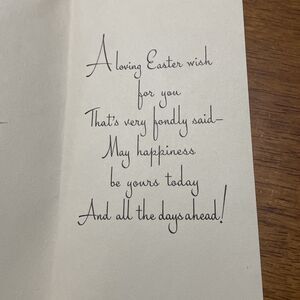 A loving Easter wish
for you
That's very fondly said—
May happiness
be yours today
And all the days ahead!